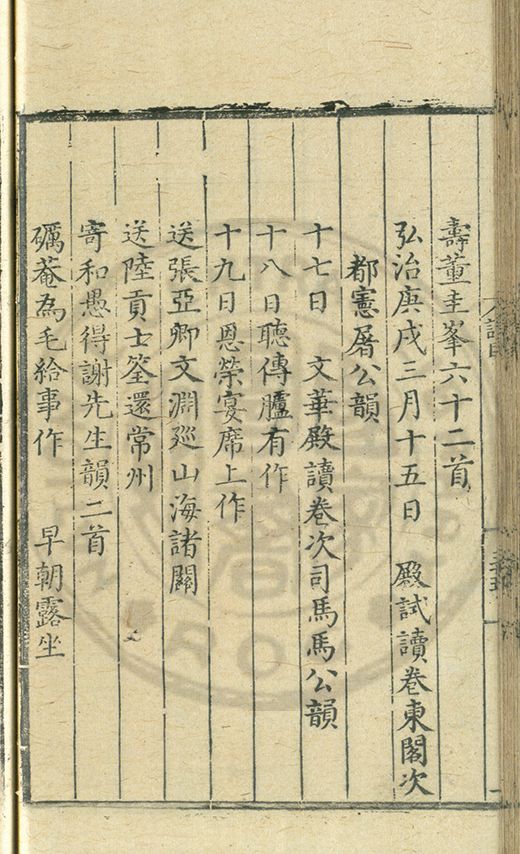 壽董圭峯六十二首
弘治庚戌三月十五日　殿試讀卷東閣次
都憲屠公韻
十七日　文華殿讀卷次司馬馬公韻
十八日聽傳臚有作
十九日恩榮宴席上作
送張亞卿文淵廵山海諸關
送陸貢士筌還常州
寄和愚得謝先生韻二首
礪菴為毛給事作　早朝露坐